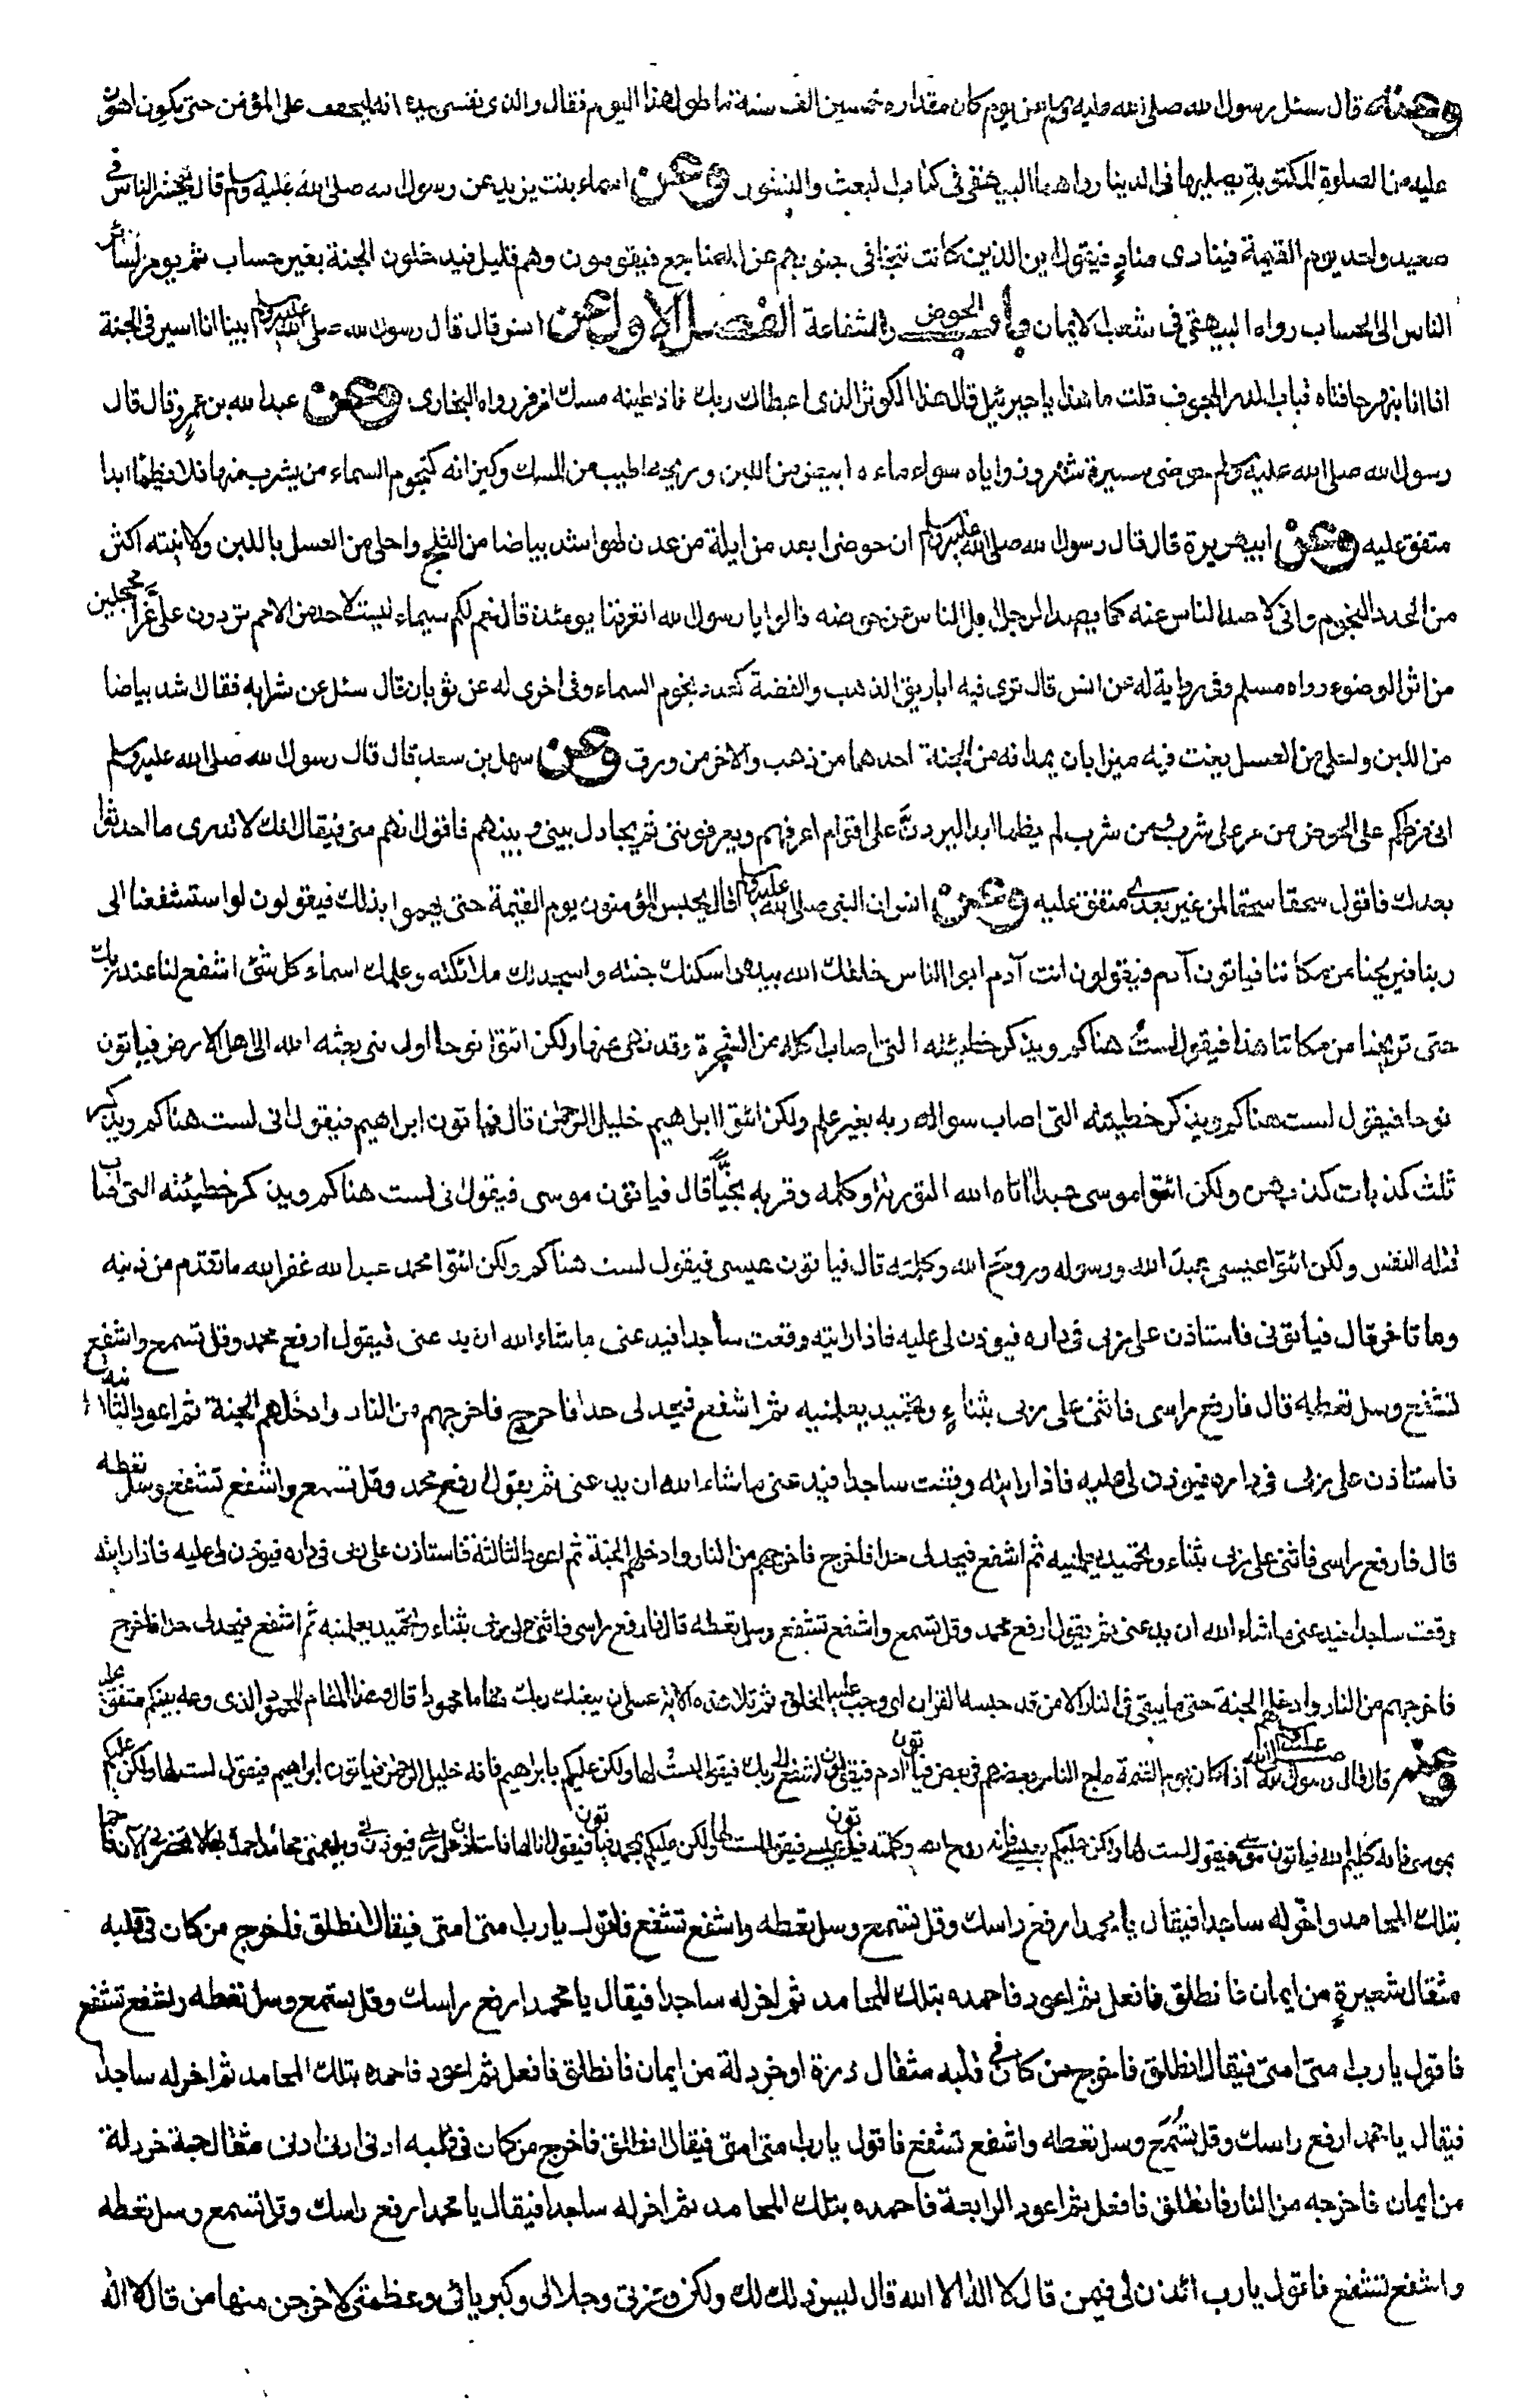 وعنه قال سئل رسول الله صلى الله عليه وسلم عن يوم كان مقداره خمسين الف سنة ما طول هذا اليوم فقال والذى نفسى بيده انه ليخفف على المؤمن حتى يكون اهون
عليه من الصلوة المكتوبة يصليها فى الدنيا رواهما البيهقى فى كتاب البعث والنشور وعن اسماء بنت يزيد عن رسول الله صلى الله عليه وسلم قال يحشر الناس فى
صعيد واحد يوم القيمة فينادى منادٍ فيقول اين الذين كانت تتجافى جنوبهم عن المضاجع فيقومون وهم قليل فيدخلون الجنة بغير حساب ثم يومر لسائر
الناس الى الحساب رواه البيهقى فى شعب الايمان باب الحوض والشفاعة الفصل الاول عن انس قال قال رسول الله صلى الله عليه وسلم بينا انا اسير فى الجنة
اذا انا بنهر حافتاه قباب الدر المجوف قلت ما هذا يا جبرئيل قال هذا الكوثر الذى اعطاك ربك فاذا طينه مسك اذفر رواه البخارى وعن عبد الله بن عمرو قال قال
رسول الله صلى الله عليه وسلم حوضى مسيرة شهر وزواياه سواء ماءه ابيض من اللبن وريحه اطيب من المسك وكيزانه كنجوم السماء من يشرب منها فلا يظمأ ابدا
متفق عليه وعن ابى هريرة قال قال رسول الله صلى الله عليه وسلم ان حوضى ابعد من ايلة من عدن لهو اشد بياضا من الثلج واحلى من العسل باللبن ولانيته اكثر
من عدد النجوم وانى لاصد الناس عنه كما يصد الرجل ابل الناس عن حوضه قالوا يا رسول الله اتعرفنا يومئذ قال نعم لكم سيماء ليست لاحد من الامم تردون على غرا محجلين
من اثر الوضوء رواه مسلم وفى رواية له عن انس قال ترى فيه اباريق الذهب والفضة كعدد نجوم السماء وفى اخرى له عن ثوبان قال سئل عن شرابه فقال اشد بياضا
من اللبن واحلى من العسل يغت فيه ميزابان يمدانه من الجنة احدهما من ذهب والاخر من ورق وعن سهل بن سعد قال قال رسول الله صلى الله عليه وسلم
انى فرطكم على الحوض من مر على شرب ومن شرب لم يظما ابدا ليردن على اقوام اعرفهم ويعرفوننى ثم يحال بينى وبينهم فاقول انهم منى فيقال انك لا تدرى ما احدثوا
بعدك فاقول سحقا سحقا لمن غير بعدى متفق عليه وعن انس ان النبى صلى الله عليه وسلم قال يحبس المؤمنون يوم القيمة حتى يهموا بذلك فيقولون لو استشفعنا الى
ربنا فيريحنا من مكاننا فياتون آدم فيقولون انت آدم ابو الناس خلقك الله بيده واسكنك جنته واسجد لك ملائكته وعلمك اسماء كل شئ اشفع لنا عند ربك
حتى يريحنا من مكاننا هذا فيقول لست هناكم ويذكر خطيئته التى اصاب اكله من الشجرة وقد نهى عنها ولكن ائتوا نوحا اول نبى بعثه الله الى اهل الارض فياتون
نوحا فيقول لست هناكم ويذكر خطيئته التى اصاب سواله ربه بغير علم ولكن ائتوا ابراهيم خليل الرحمن قال فياتون ابراهيم فيقول انى لست هناكم ويذكر
ثلث كذبات كذبهن ولكن ائتوا موسى عبدا اتاه الله التورىة وكلمه وقربه نجيّا قال فياتون موسى فيقول انى لست هناكم ويذكر خطيئته التى اصاب
قتله النفس ولكن ائتوا عيسى عبد الله ورسوله وروح الله وكلمته قال فياتون عيسى فيقول لست هناكم ولكن ائتوا محمد عبدا لله غفر الله ما تقدم من ذنبه
وما تاخر قال فياتونى فاستاذن على ربى فى داره فيوذن لى عليه فاذا رايته وقعت ساجدا فيدعنى ما شاء الله ان يدعنى فيقول ارفع محمد وقل تسمع واشفع
تشفع وسل تعطه قال فارفع راسى فاثنى على ربى بثناءٍ وتحميد يعلمنيه ثم اشفع فيحد لى حدا فاخرج فاخرجهم من النار وادخلهم الجنة ثم اعود الثانية
فاستاذن على ربى فى داره فيوذن لى عليه فاذا رايته وقعت ساجدا فيدعنى ما شاء الله ان يدعنى ثم يقول ارفع محمد وقل تسمع واشفع تشفع وسل تعطه
قال فارفع راسى فاثنى على ربى بثناء وتحميد يعلمنيه ثم اشفع فيحد لى حدا فاخرج فاخرجهم من النار وادخلهم الجنة ثم اعود الثالثة فاستاذن على ربى فى داره فيوذن لى عليه فاذا رايته
وقعت ساجدا فيدعنى ما شاء الله ان يدعنى ثم يقول ارفع محمد وقل تسمع واشفع تشفع وسل تعطه قال فارفع راسى فاثنى على ربى بثناء وتحميد يعلمنيه ثم اشفع فيحد لى حدا فاخرج
فاخرجهم من النار وادخلهم الجنة حتى ما يبقى فى النار الا من قد حبسه القران اى وجب عليه الخلود ثم تلا هذه الاية عسى ان يبعثك ربك مقاما محمودا قال وهذا المقام المحمود الذى وعده نبيكم متفق عليه
وعنه قال قال رسول الله صلى الله عليه وسلم اذا كان يوم القيمة ماج الناس بعضهم فى بعض فياتون ادم فيقولون اشفع الى ربك فيقول لست لها ولكن عليكم بابراهيم فانه خليل الرحمن فياتون ابراهيم فيقول لست لها ولكن عليكم
بموسى فانه كليم الله فياتون موسى فيقول لست لها ولكن عليكم بعيسى فانه روح الله وكلمته فياتون عيسى فيقول لست لها ولكن عليكم بمحمد فياتونى فيقول انا لها فاستاذن على ربى فيوذن لى ويلهمنى محامد احمده بها لا تحضرنى الآن فاحمده
بتلك المحامد واخر له ساجدا فيقال يا محمد ارفع راسك وقل تسمع وسل تعطه واشفع تشفع فاقول يارب امتى امتى فيقال انطلق فاخرج من كان فى قلبه
مثقال شعيرةٍ من ايمان فانطلق فافعل ثم اعود فاحمده بتلك المحامد ثم اخر له ساجدا فيقال يا محمد ارفع راسك وقل تسمع وسل تعطه واشفع تشفع
فاقول يارب امتى امتى فيقال انطلق فاخرج من كان فى قلبه مثقال ذرة او خردلة من ايمان فانطلق فافعل ثم اعود فاحمده بتلك المحامد ثم اخر له ساجدا
فيقال يا محمد ارفع راسك وقل تُسمع وسل تعطه واشفع تشفع فاقول يارب امتى امتى فيقال انطلق فاخرج من كان فى قلبه ادنى ادنى ادنى مثقال حبة خردلة
من ايمان فاخرجه من النار فانطلق فافعل ثم اعود الرابعة فاحمده بتلك المحامد ثم اخر له ساجدا فيقال يا محمد ارفع راسك وقل تسمع وسل تعطه
واشفع تشفع فاقول يارب ائذن لى فيمن قال لا اله الا الله قال ليس ذلك لك ولكن وعزتى وجلالى وكبريائى وعظمتى لاخرجن منها من قال لا اله